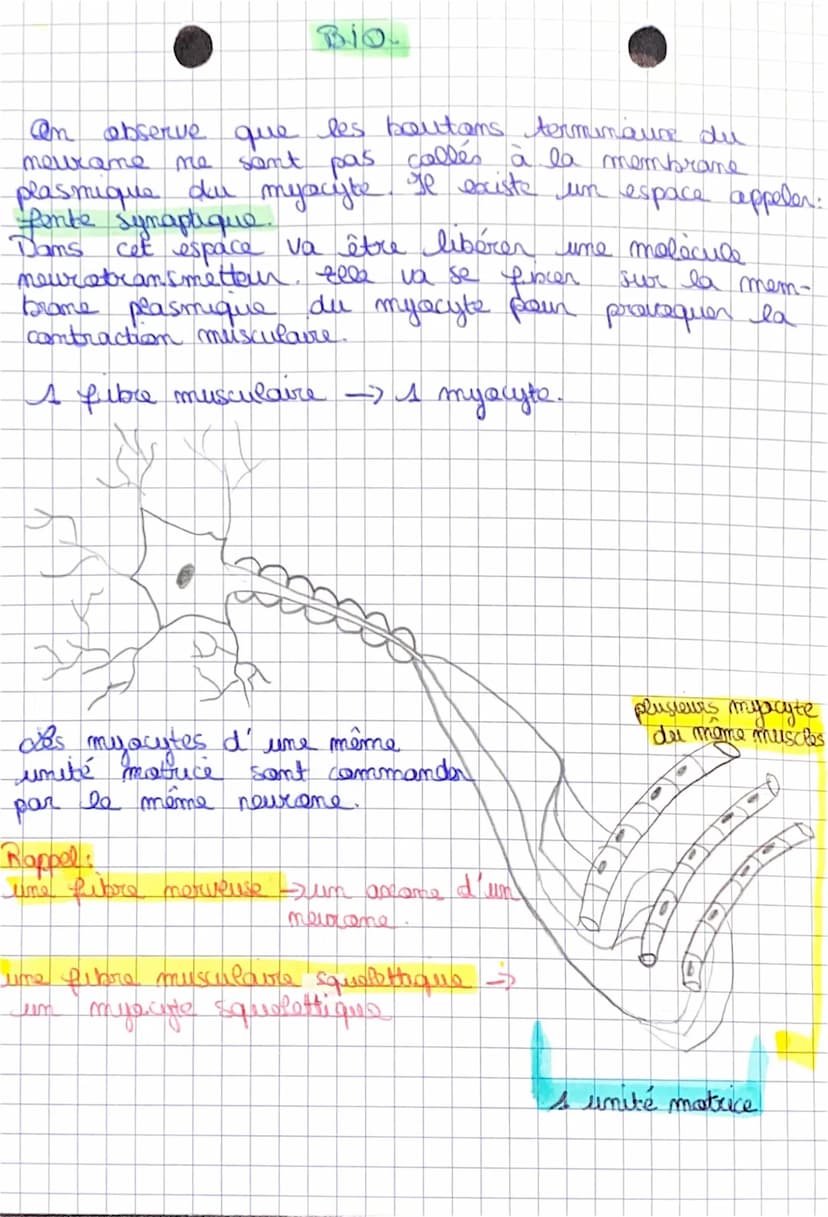 Bio.
On observe que les boutons terminaux du
neurone ne sont pas collés à la membrane
plasmique du myocyte. Il existe un espace appeler:
fente synaptique.
Dans cet espace va être libérer une molécule
neurotransmetteur. Elle va se fixer sur la mem-
brane plasmique du myocyte pour provoquer la
contraction musculaire.
1 fibre musculaire → 1 myocyte.
plusieurs myocyte
du même muscles
Les myocytes d'une même
unité motrice sont commander
par le même neurone.
Rappel:
une fibre nerveuse → un axone d'un
neurone.
une fibre musculaire squelettique →
un myocyte squelettique
1 unité motrice